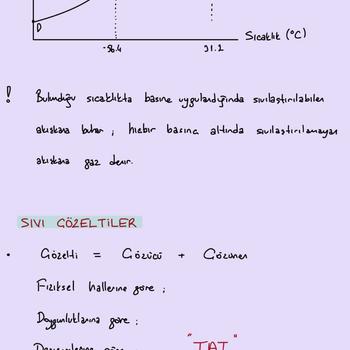 D
-56.4
31.2
Sıcaklık (°C)
! Bulunduğu sıcaklıkta basınç uygulandığında sıvılaştırılabilen
akışkana buhar, hiçbir basınç altında sıvılaştırılamayan
akışkana gaz denir.
SIVI ÇÖZELTİLER
• Çözelti = Çözücü + Çözünen
Fiziksel hallerine göre ;
Doygunluklarına göre ;
"TAT"